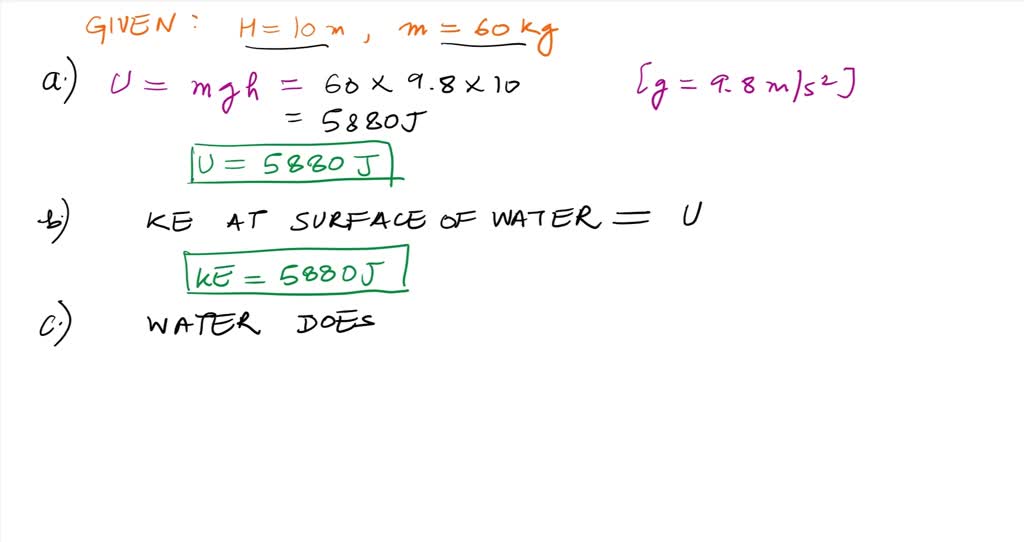 GIVEN: H = 10 m, m = 60 kg
a.) U = mgh = 60 × 9.8 × 10 [g = 9.8 m/s²]
= 5880J
U = 5880 J
b.) KE AT SURFACE OF WATER = U
KE = 5880J
c.) WATER DOES